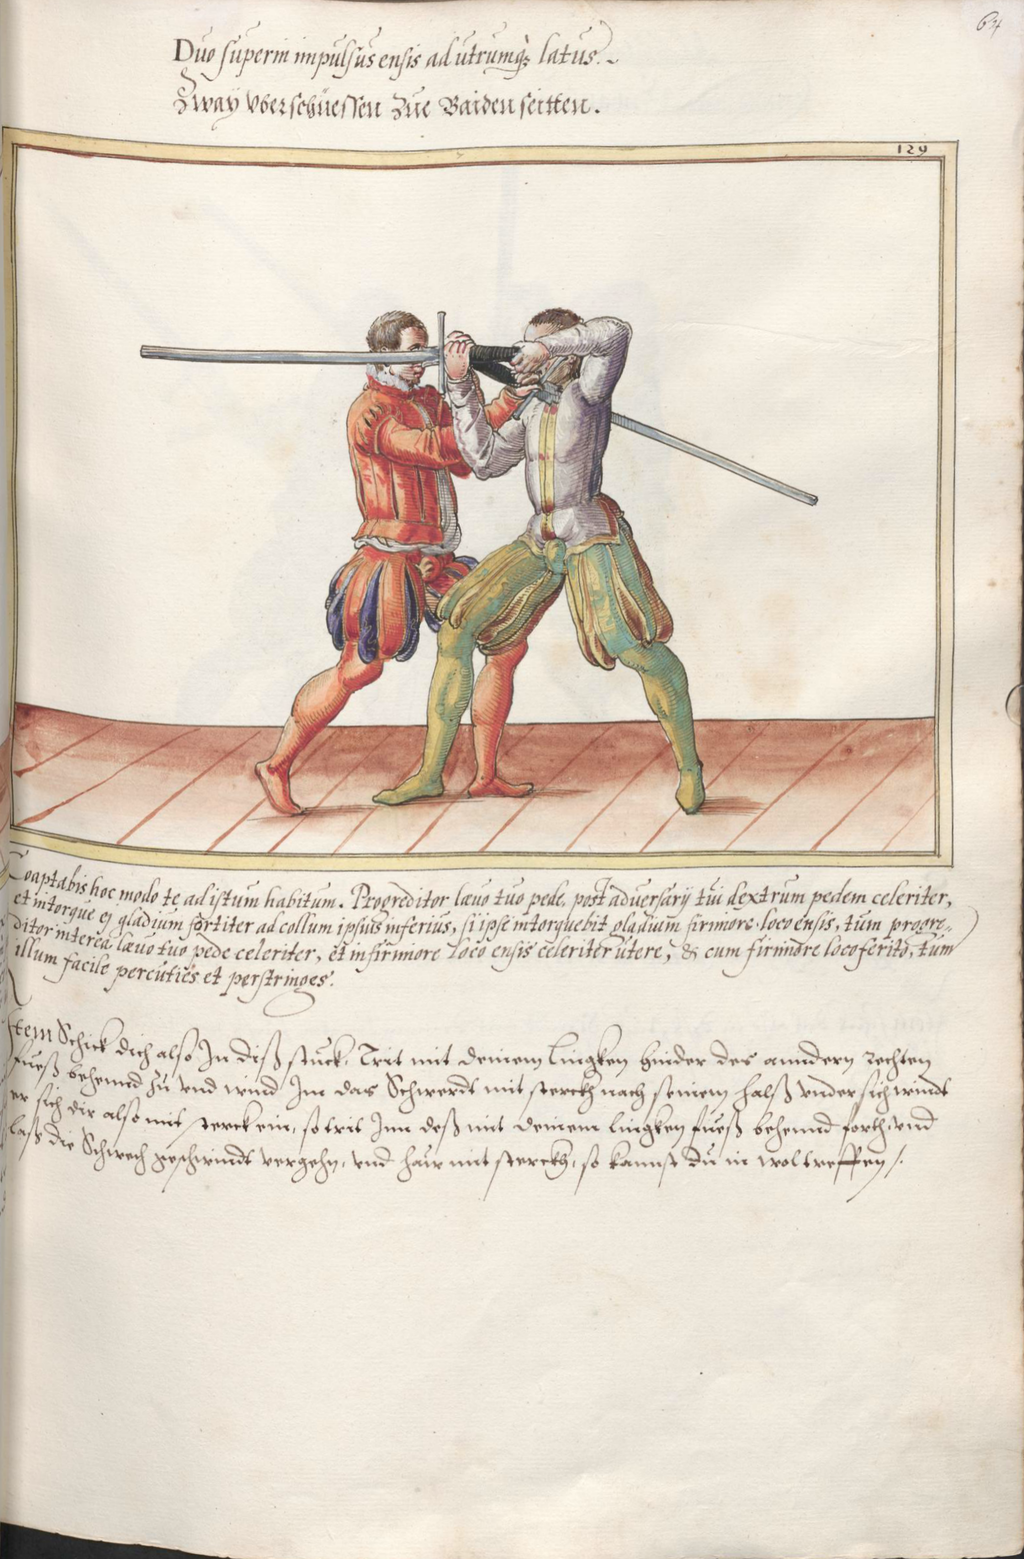 64
Duo superni impulsus ensis ad utrumq; latus.
Zway vberschüessen Zue Baiden seitten.
129
Coaptabis hoc modo te ad istum habitum. Progreditor laevo tuo pede, post adversarÿ tui dextrum pedem celeriter,
et intorque ej gladium fortiter ad collum ipsius inferius, si ipse intorquebit gladium firmiore loco ensis, tum progre-
ditor interea laevo tuo pede celeriter, et infirmiore loco ensis celeriter utere, & cum firmiore loco ferito, tum
illum facile percuties et perstringes.
Item Schick dich also In diß stuck. Trit mit deinem Lingken hinder des anndern rechten
fueß behennd zu vnd wind Im das Schwerdt mit sterckh nach seinem halß vnder sich windt
er sich dir also mit sterck ein, so trit Inn deß mit deinem lingken fueß behennd forth, vnd
laß die Schwech geschwindt vergehn, vnd haw mit sterckh, so kannst du in wol treffen /.